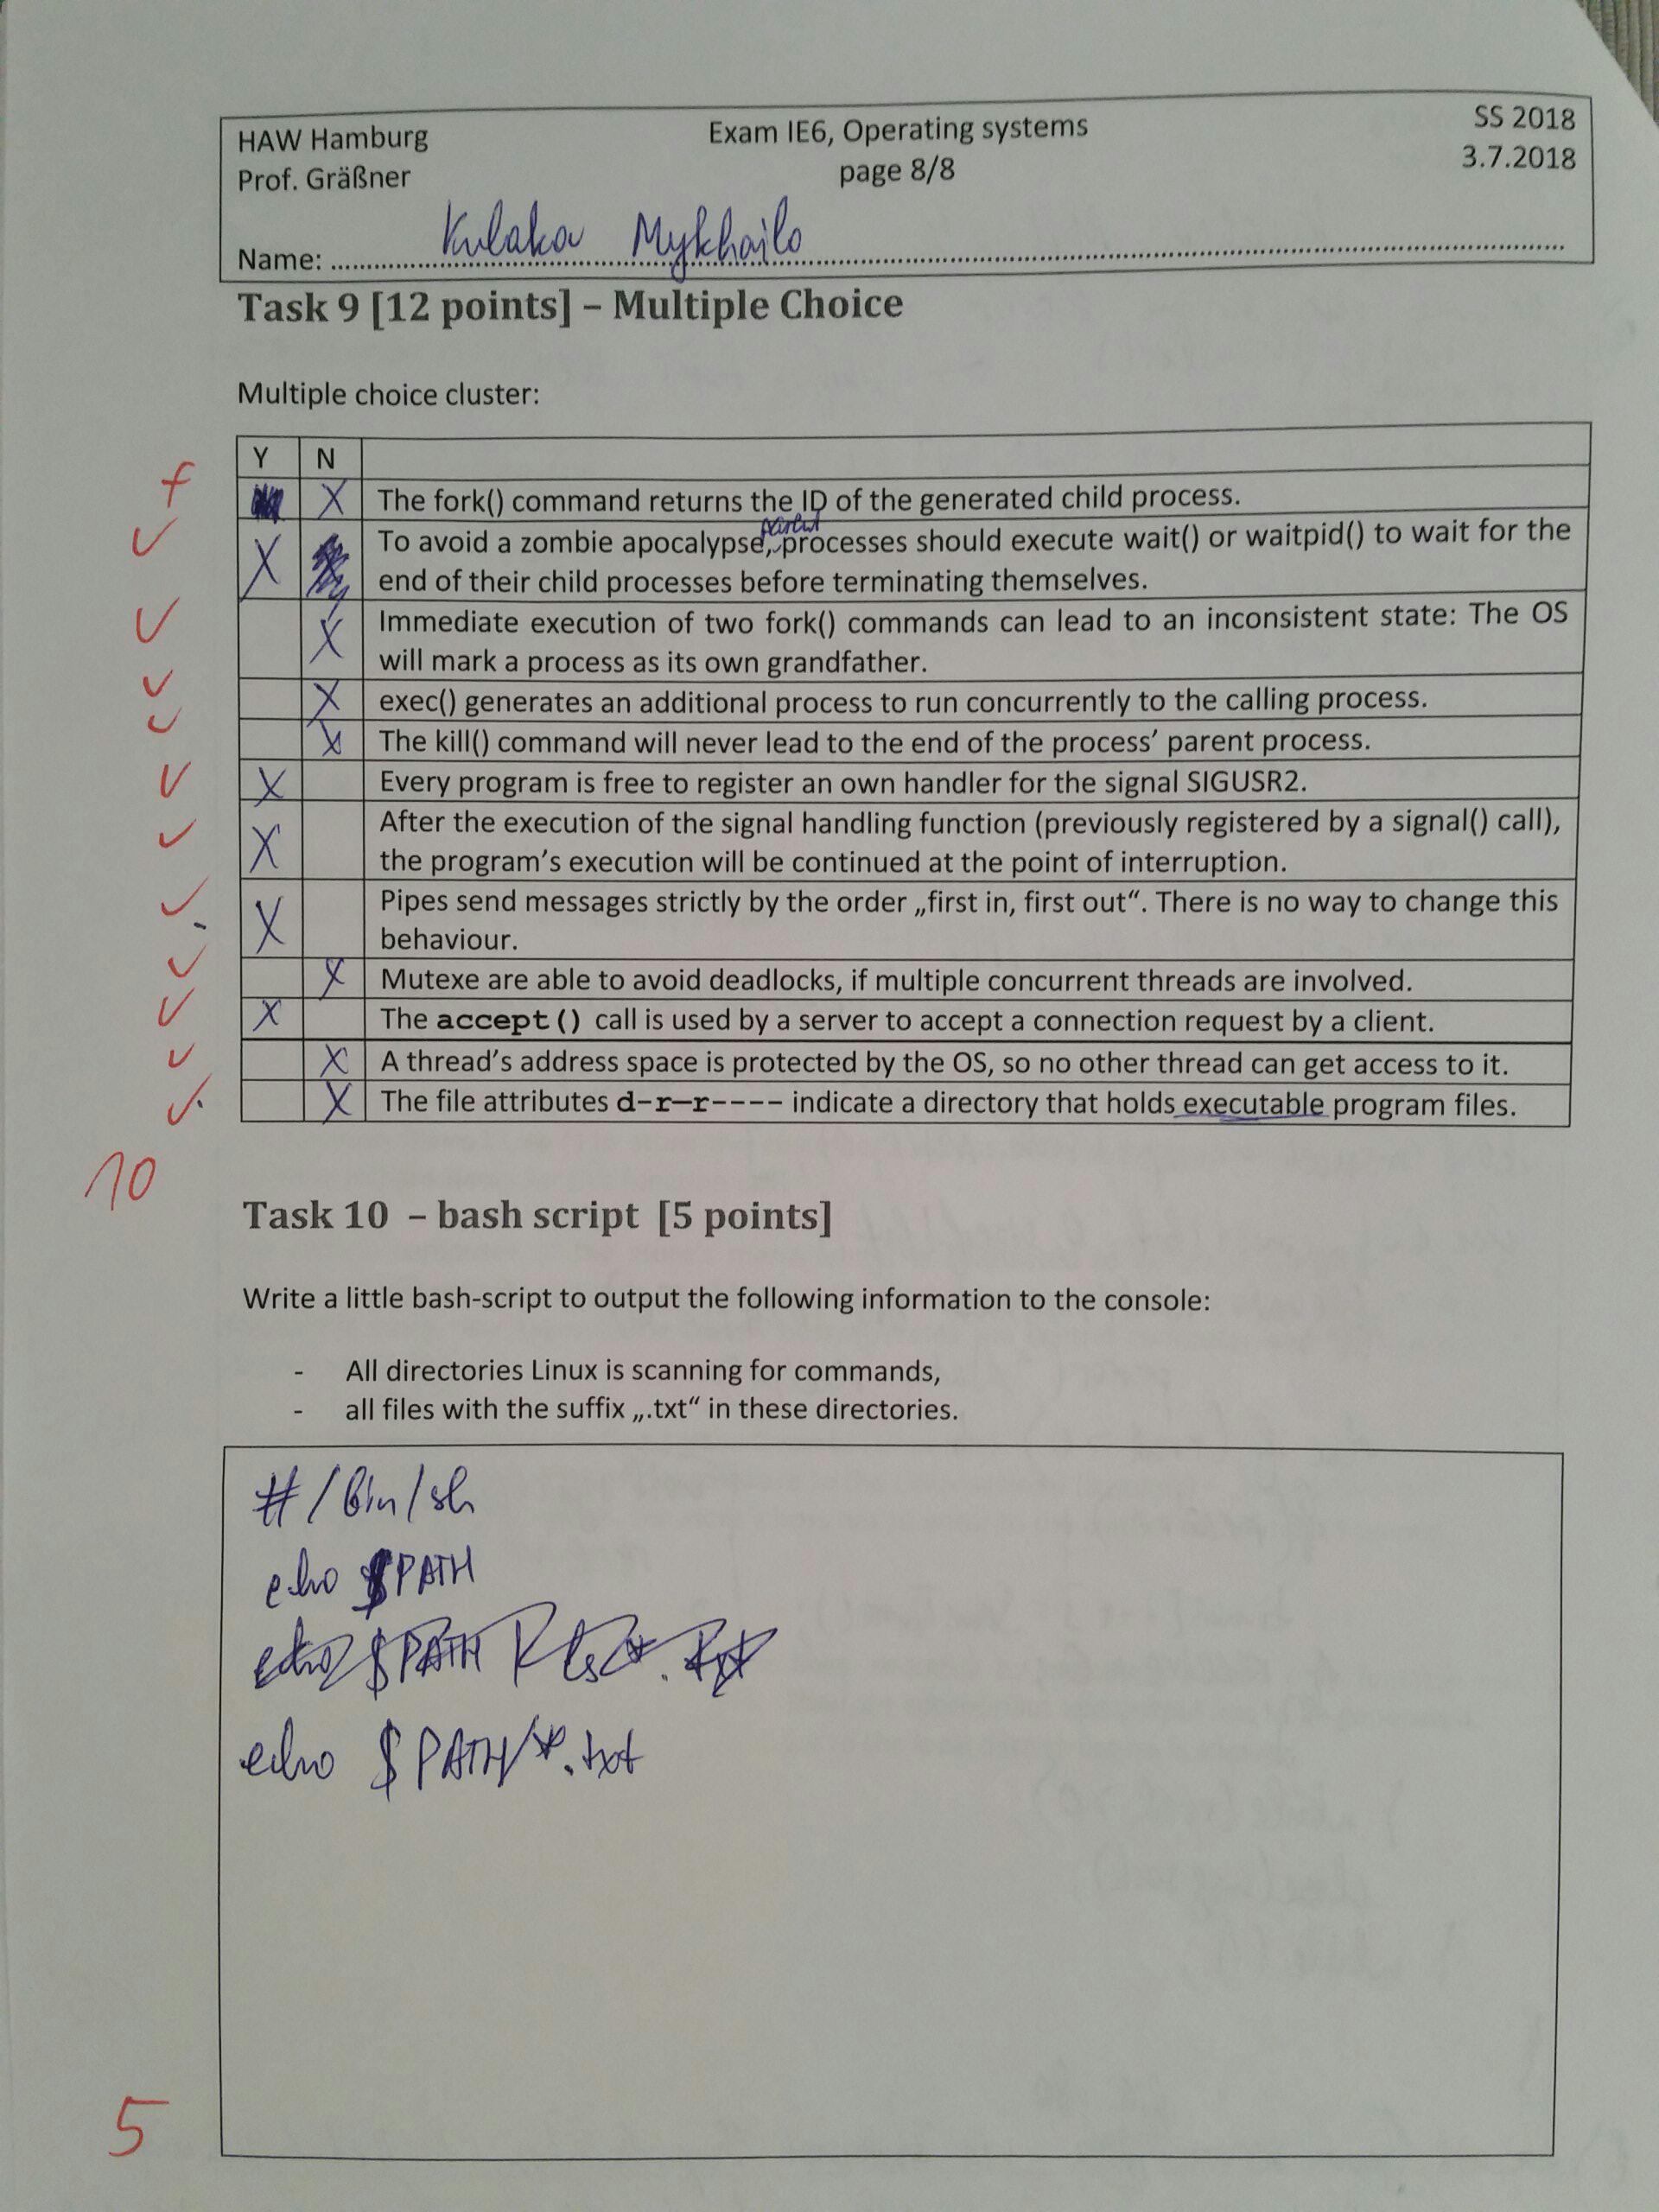 HAW Hamburg Exam IE6, Operating systems SS 2018
Prof. Gräßner page 8/8 3.7.2018
Name: Kulakov Mykhailo
Task 9 [12 points] – Multiple Choice
Multiple choice cluster:
Y N
f X The fork() command returns the ID of the generated child process.
parent
✓ X To avoid a zombie apocalypse, processes should execute wait() or waitpid() to wait for the
end of their child processes before terminating themselves.
✓ X Immediate execution of two fork() commands can lead to an inconsistent state: The OS
will mark a process as its own grandfather.
✓ X exec() generates an additional process to run concurrently to the calling process.
✓ X The kill() command will never lead to the end of the process’ parent process.
✓ X Every program is free to register an own handler for the signal SIGUSR2.
✓ X After the execution of the signal handling function (previously registered by a signal() call),
the program’s execution will be continued at the point of interruption.
✓ X Pipes send messages strictly by the order „first in, first out“. There is no way to change this
behaviour.
✓ X Mutexe are able to avoid deadlocks, if multiple concurrent threads are involved.
✓ X The accept() call is used by a server to accept a connection request by a client.
✓ X A thread’s address space is protected by the OS, so no other thread can get access to it.
✓ X The file attributes d-r—r---- indicate a directory that holds executable program files.
10
Task 10 – bash script [5 points]
Write a little bash-script to output the following information to the console:
- All directories Linux is scanning for commands,
- all files with the suffix „.txt“ in these directories.
#/bin/sh
echo $PATH
echo $PATH ls *.txt
echo $PATH/*.txt
5